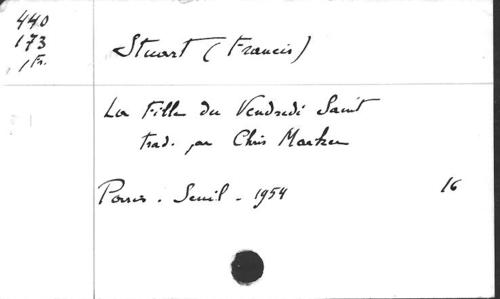 440
173
1 Fr.
Stuart (Francis)
La Fille du Vendredi Saint
trad. par Chris Marker
Paris. Seuil. 1954
16